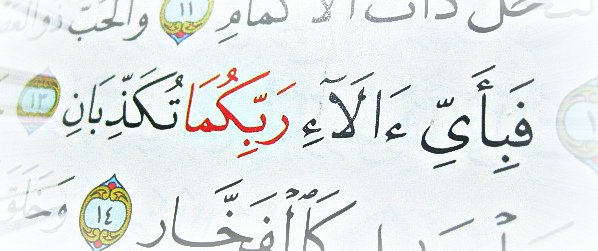 ذَاتُ الْأَكْمَامِ ١١ وَالْحَبُّ ذُو
فَبِأَيِّ ءَالَآءِ رَبِّكُمَا تُكَذِّبَانِ ١٣
كَالْفَخَّارِ ١٤ وَخَلَقَ